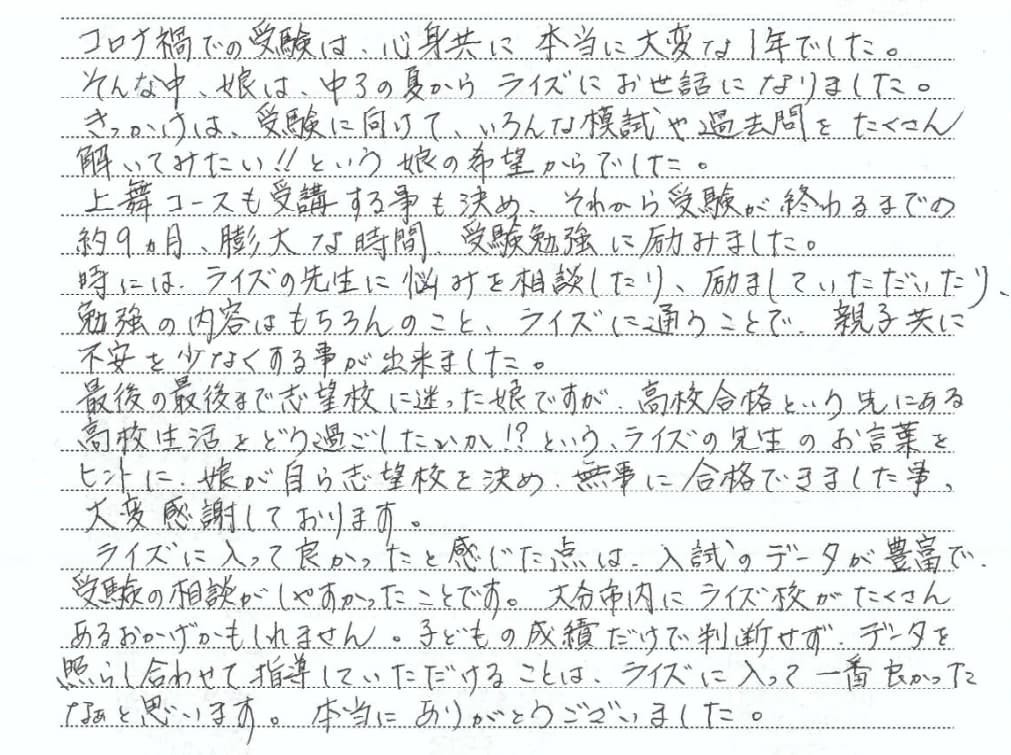 コロナ禍での受験は、心身共に本当に大変な1年でした。
そんな中、娘は、中3の夏からライズにお世話になりました。
きっかけは、受験に向けて、いろんな模試や過去問をたくさん
解いてみたい!!という娘の希望からでした。
上舞コースも受講する事も決め、それから受験が終わるまでの
約9ヵ月、膨大な時間、受験勉強に励みました。
時には、ライズの先生に悩みを相談したり、励ましていただいたり、
勉強の内容はもちろんのこと、ライズに通うことで、親子共に
不安を少なくする事が出来ました。
最後の最後まで志望校に迷った娘ですが、高校合格という先にある
高校生活をどう過ごしたいか!?という、ライズの先生のお言葉を
ヒントに、娘が自ら志望校を決め、無事に合格できました事、
大変感謝しております。
ライズに入って良かったと感じた点は、入試のデータが豊富で、
受験の相談がしやすかったことです。大分市内にライズ校がたくさん
あるおかげかもしれません。子どもの成績だけで判断せず、データを
照らし合わせて指導していただけることは、ライズに入って一番良かった
なぁと思います。本当にありがとうございました。